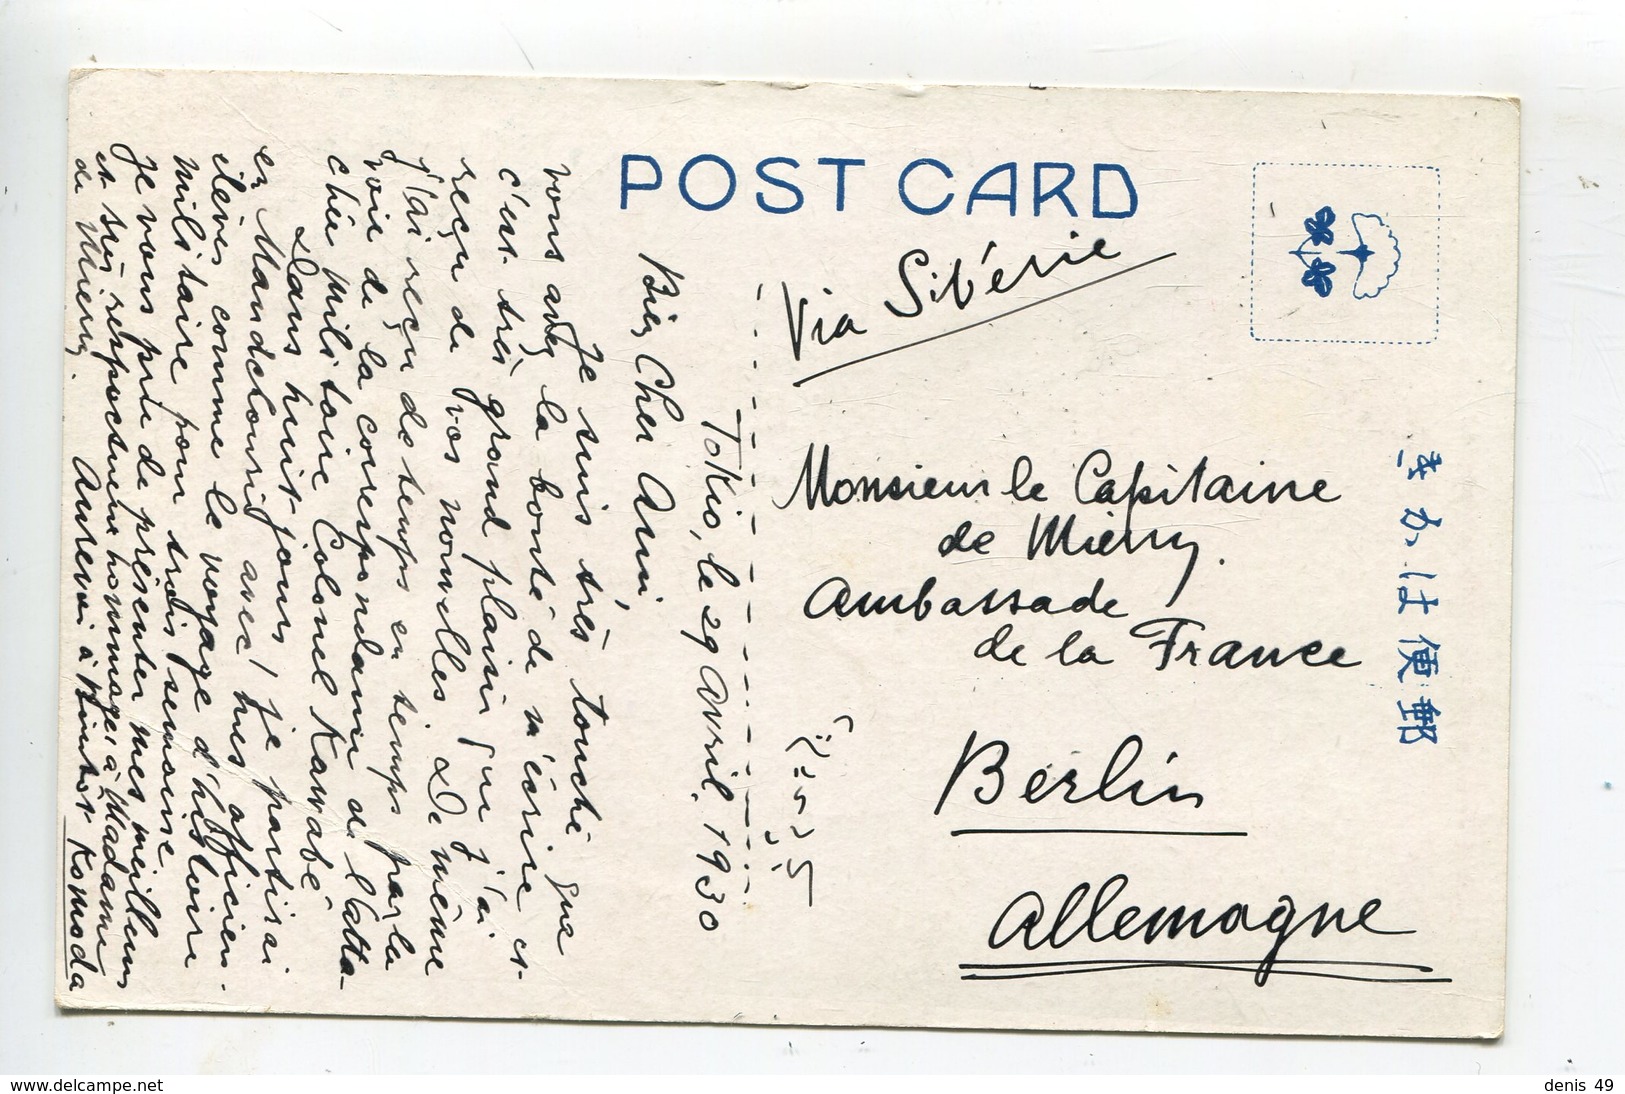 POST CARD
Via Sibérie
Monsieur le Capitaine
de Mierry.
Ambassade
de la France
Berlin
Allemagne
郵便はがき
Tokio, le 29 Avril. 1930
Bien Cher Ami,
Je suis très touché que
vous avez la bonté de m'écrire et
c'est très grand plaisir que j'ai
reçu de vos nouvelles. De même
j'ai reçu de temps en temps par la
voie de la correspondance de l'atta-
ché militaire Colonel Kawabé
Dans huit jours je partirai
en Mandchourie avec mes officiers
élèves comme le voyage d'histoire
militaire pour trois semaine.
Je vous prie de présenter mes meilleurs
et très respectueux hommages à Madame
de Mierry. Aurevoi à bientôt Komoda
www.delcampe.net
denis 49